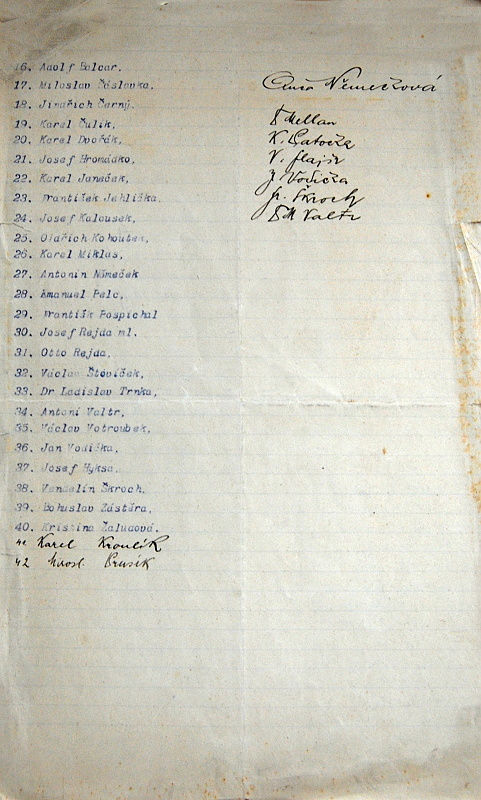 16. Adolf Balcar,
17. Miloslav Čáslavka,
18. Jindřich Černý,
19. Karel Čulík,
20. Karel Dvořák,
21. Josef Hromádko,
22. Karel Janeček,
23. František Jehlička,
24. Josef Kalousek,
25. Oldřich Kohoutek,
26. Karel Miklas,
27. Antonín Němeček
28. Emanuel Pelc,
29. Františk Pospíchal
30. Josef Rejda ml.
31. Otto Rejda,
32. Václav Šťovíček,
33. Dr Ladislav Trnka,
34. Antoní Valtr,
35. Václav Votroubek,
36. Jan Vodička,
37. Josef Hyksa,
38. Vendelín Škroch,
39. Bohuslav Zástěra,
40. Kristina Žaludová,
41 Karel Kroulík
42 Mirosl.
Němečková
Mellan
K.
V.
J. Vodička
Škroch
Valtr